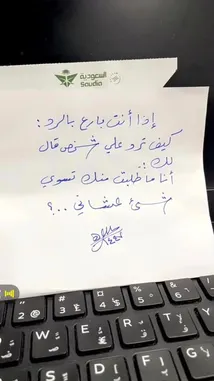 السعودية
Saudia
إذا أنت بارع بالرد :
كيف ترد على شخص قال
لك :
أنا ما طلبت منك تسوي
شئ عشاني ..؟